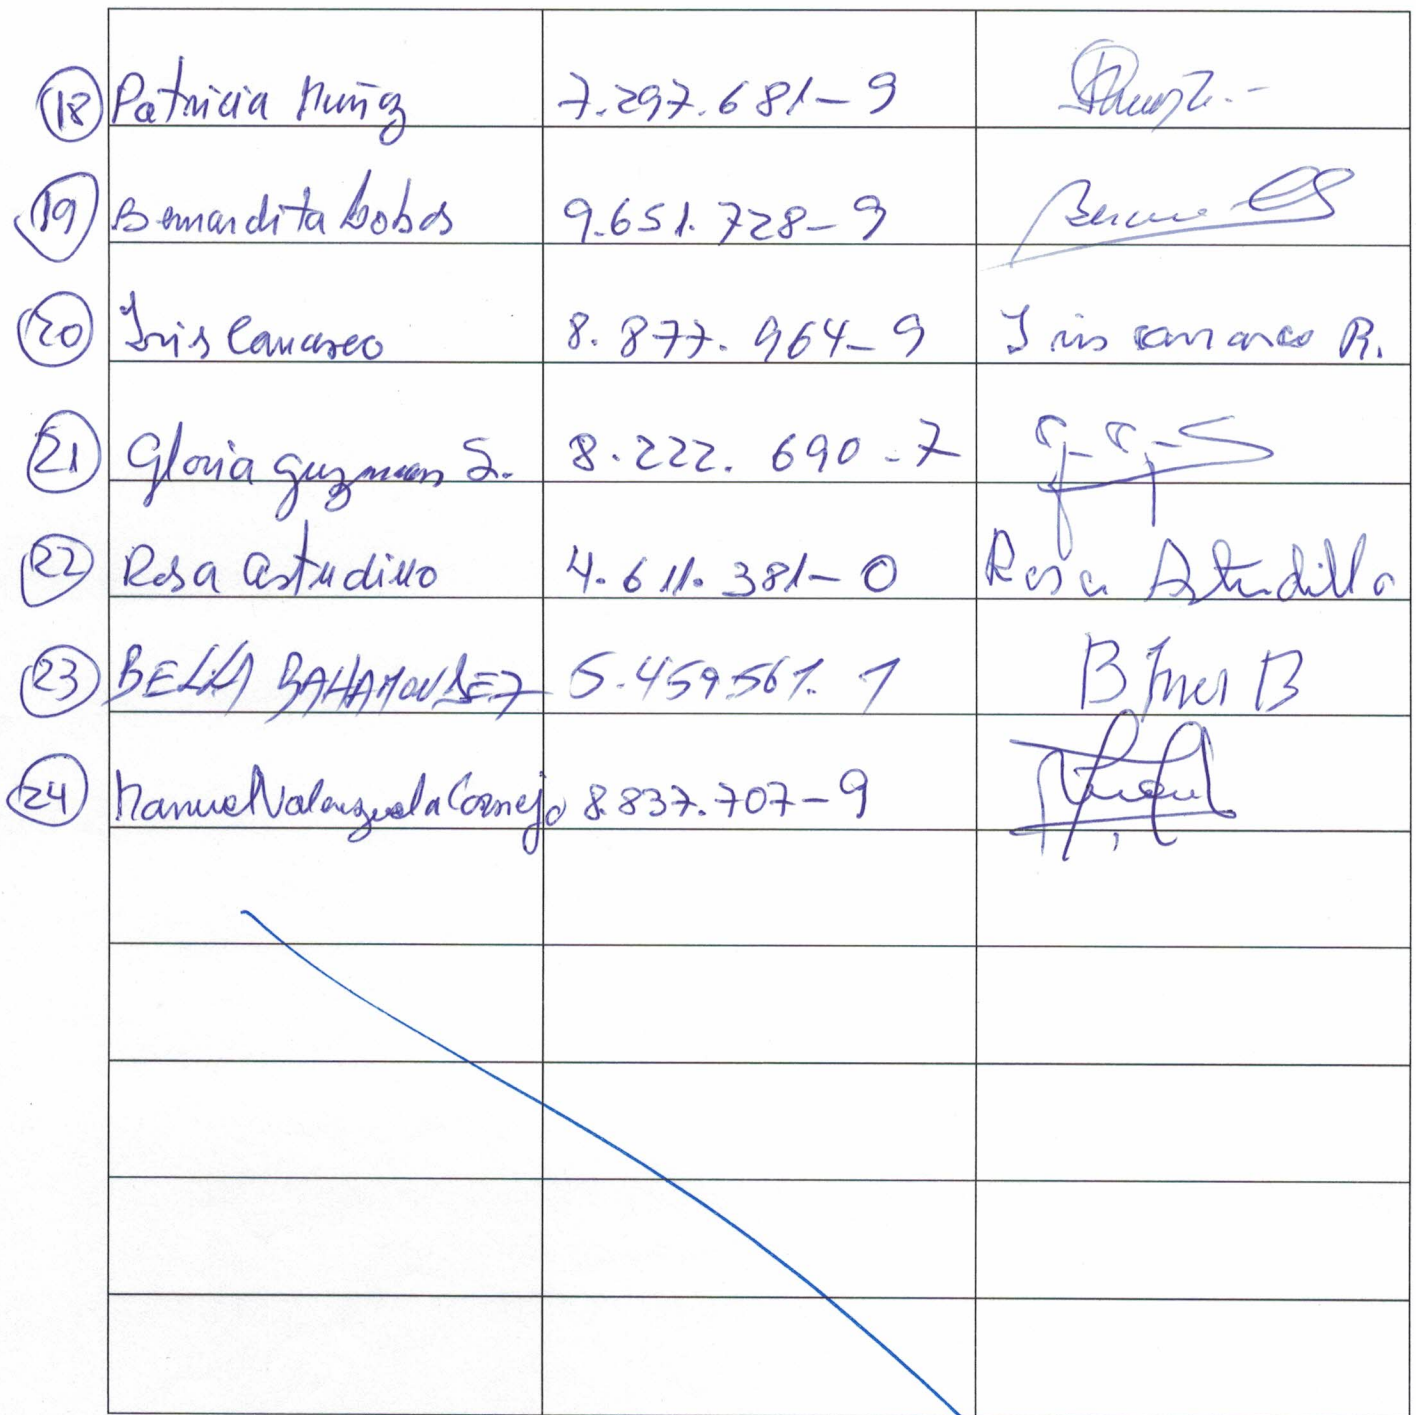 18 Patricia Muñoz 7.297.681-9
19 Bernardita Lobos 9.651.728-9
20 Iris Carrasco 8.877.964-9 Iris Carrasco R.
21 Gloria Guzman S. 8.222.690-7 g-g-S
22 Rosa Astudillo 4.611.381-0 Rosa Astudillo
23 BELLA BAHAMONDEZ 5.459561.1 B Ines B
24 Manuel Valenzuela Cornejo 8.837.707-9